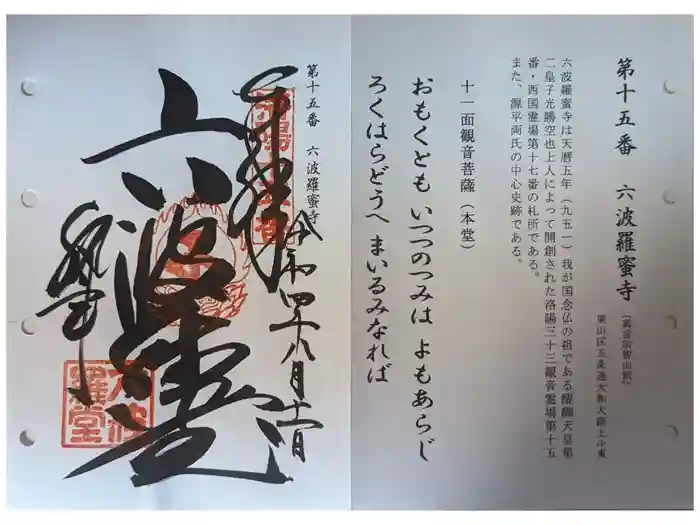 第十五番 六波羅蜜寺
(真言宗智山派)
東山区五条通大和大路上ル東
六波羅蜜寺は天暦五年(九五一)我が国念仏の祖である醍醐天皇第
二皇子光勝空也上人によって開創された洛陽三十三観音霊場第十五
番・西国霊場第十七番の札所である。
また、源平両氏の中心史跡である。
十一面観音菩薩(本堂)
おもくとも いつつのつみは よもあらじ
ろくはらどうへ まいるみなれば
第十五番 六波羅蜜寺
奉拝
令和四年八月十一日
六波羅蜜寺
六波
羅堂